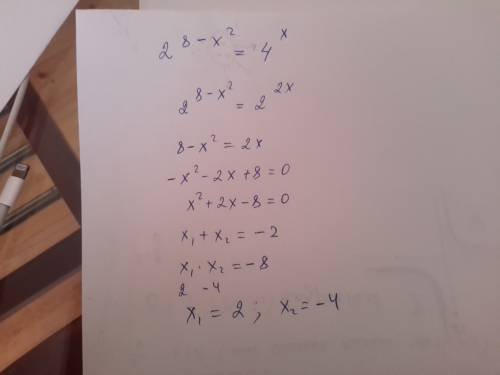 2^{8-x^2} = 4^x
2^{8-x^2} = 2^{2x}
8-x^2 = 2x
-x^2-2x+8=0
x^2+2x-8=0
x_1+x_2=-2
x_1·x_2=-8
2 -4
x_1=2; x_2=-4